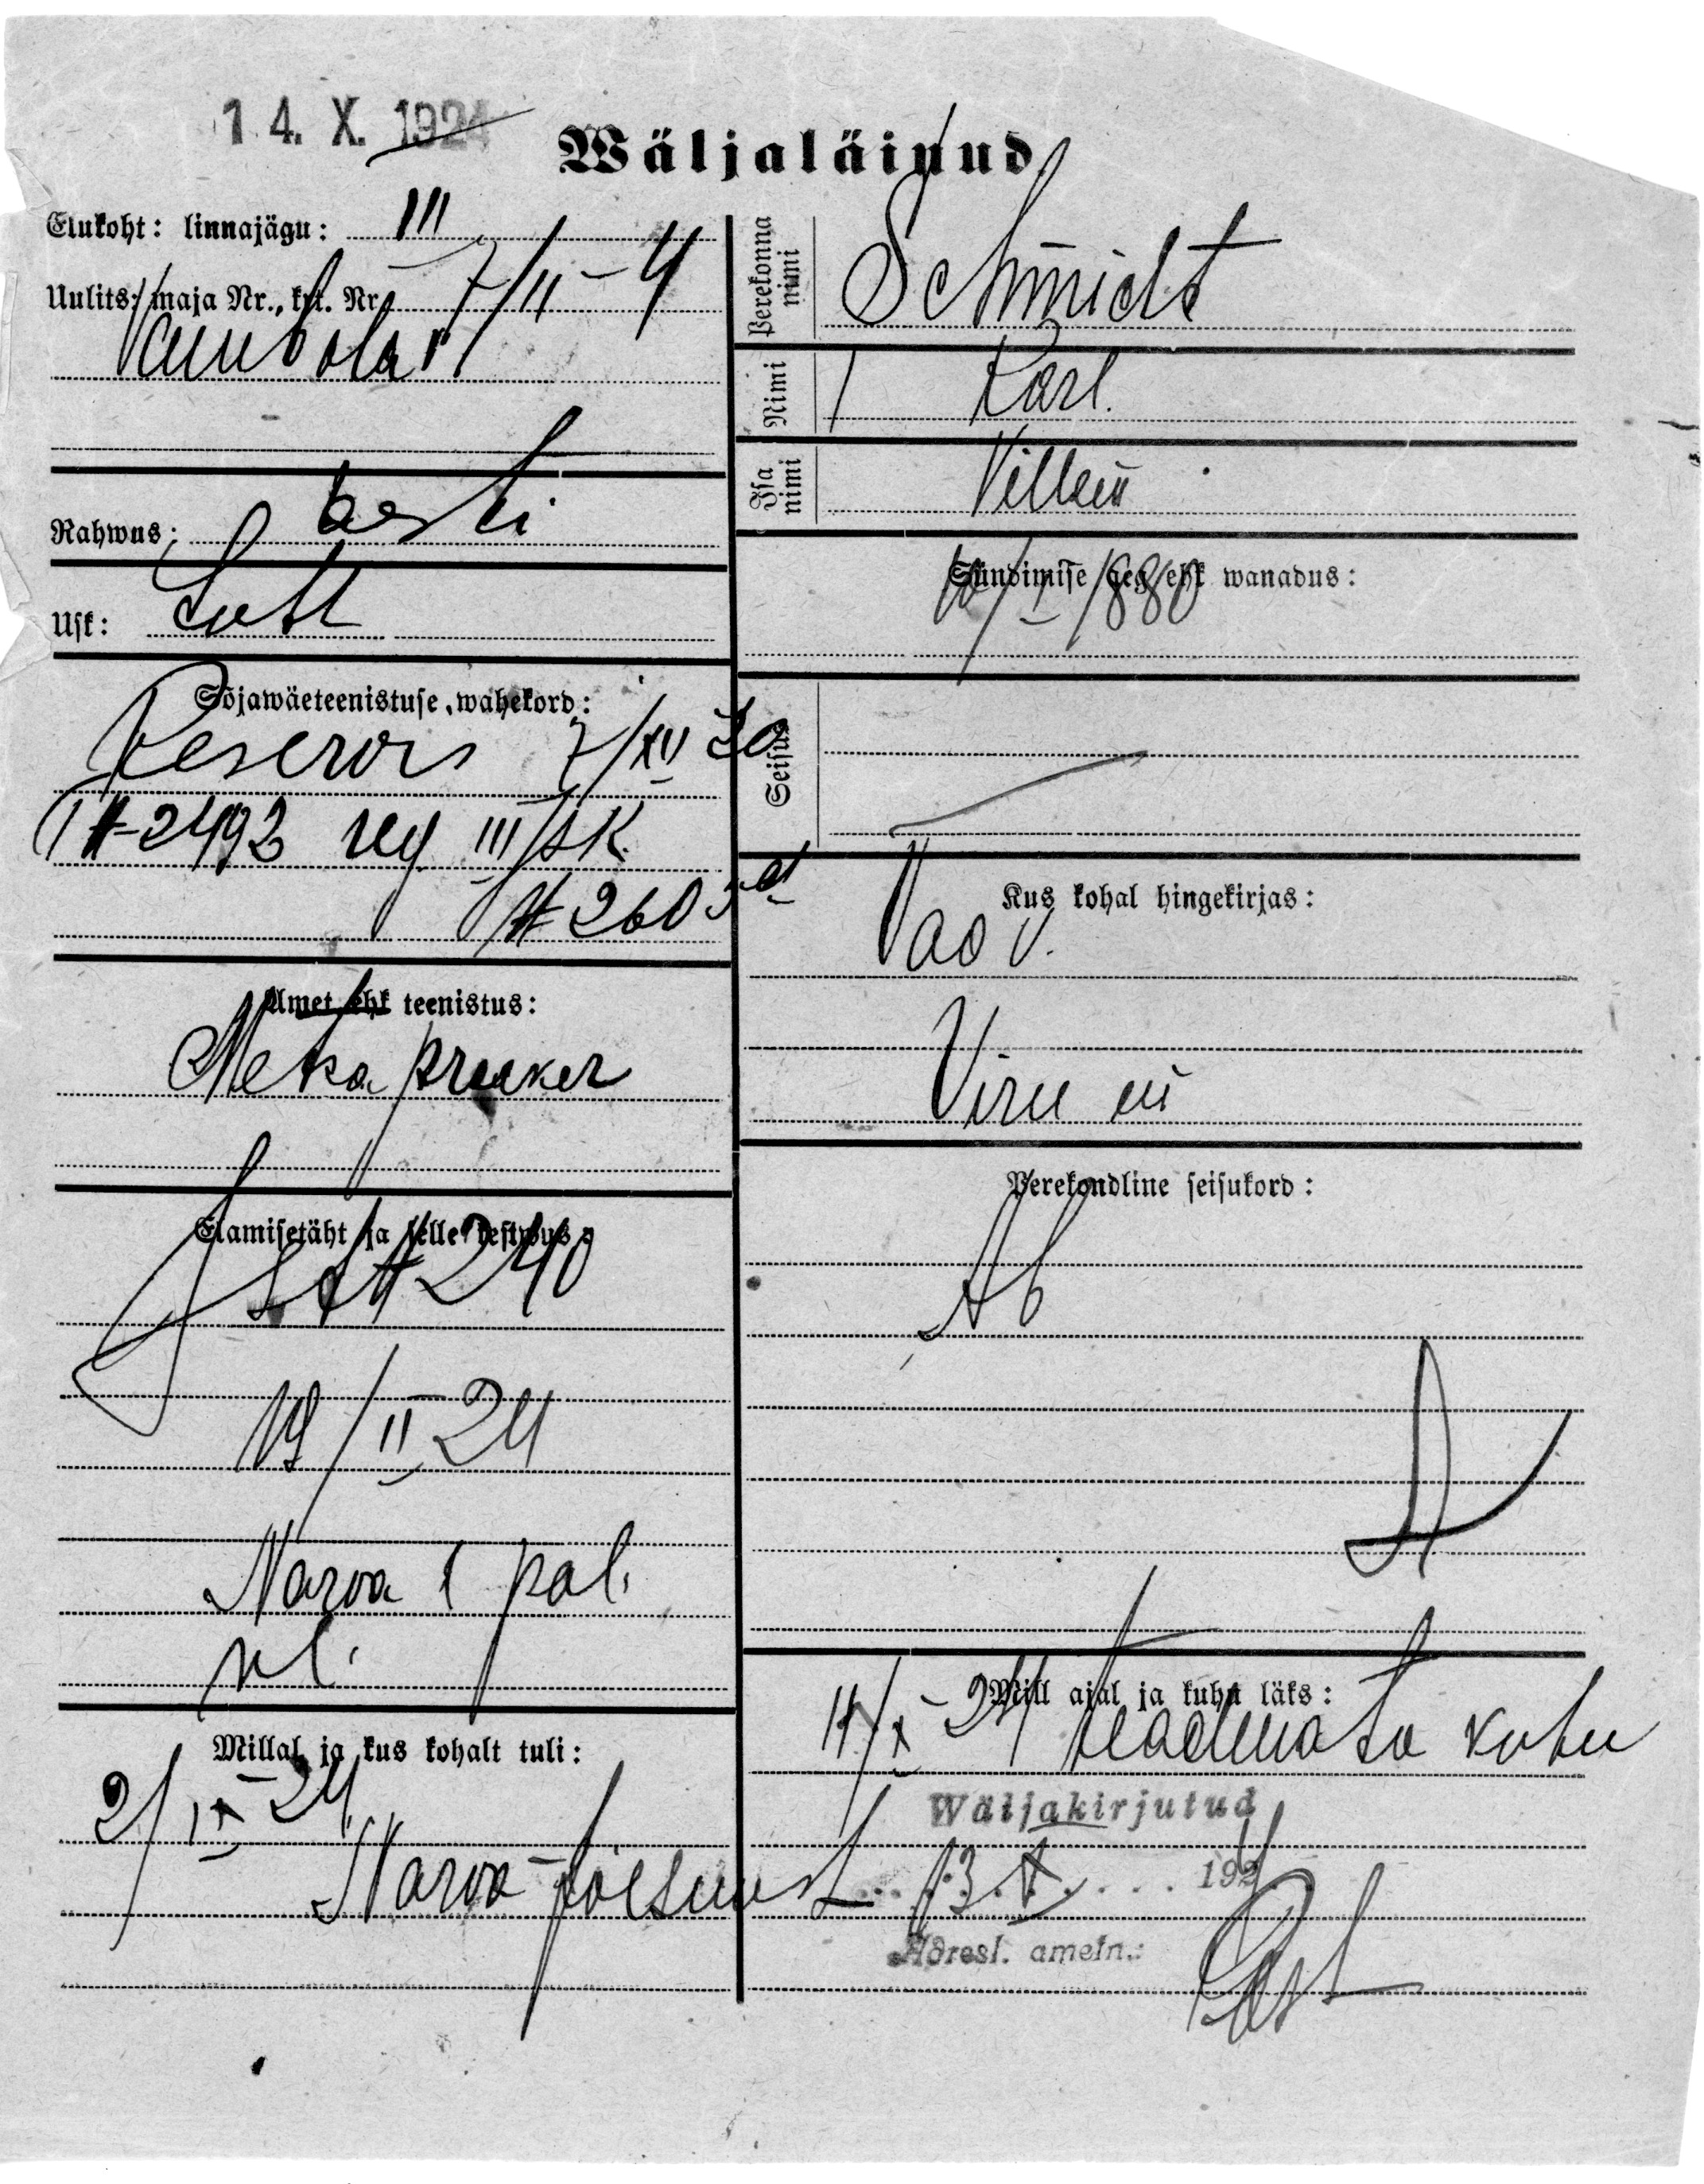 14. X. 1924
Wäljaläinud
Elukoht: linnajagu: III
Uulits, maja Nr., krt. Nr. 7/II - 4
Vambola
Rahwus: eesti
Usk: Luth
Sõjawäeteenistuse wahekord:
Reservis 7/XII 20
№ 2492 reg III/JK
№ 2605 et
Amet ehk teenistus:
Metsapraaker
Elamisetäht ja selle kestwus:
№ 240
19/II 24
Narva I pol.
Millal ja kus kohalt tuli:
2/IX - 24
Narva-Jõesuust
Perekonna nimi Schmidt
Nimi Karl.
Isa nimi Villem
Sündimise aeg ehk wanadus:
10/I 1880
Seisus
Kus kohal hingekirjas:
Vao v.
Viru m
Perekondline seisukord:
Ab
Mill ajal ja kuhu läks:
11/X - 24 teadmata kuhu
Wäljakirjutud
13 X 1924
Adresl. ametn.: